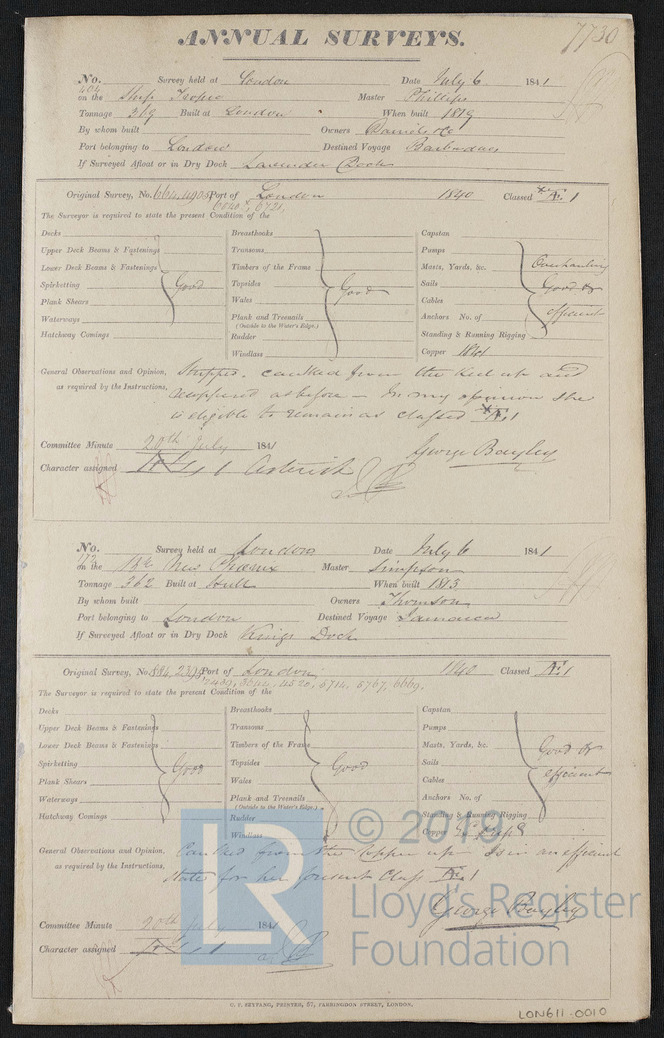 7730
ANNUAL SURVEYS.
No. 404 Survey held at London Date July 6 1841
on the Ship Tropic Master Phillips
Tonnage 369 Built at London When built 1819
By whom built Owners
Port belonging to London Destined Voyage Barbadoes
If Surveyed Afloat or in Dry Dock Lavender Dock
Original Survey, No. 664, Port of London 1840 Classed Æ 1
6721,
The Surveyor is required to state the present Condition of the
Decks Breasthooks Capstan
Upper Deck Beams & Fastenings Transoms Pumps
Lower Deck Beams & Fastenings Timbers of the Frame Masts, Yards, &c. Overhauling
Spirketting Good Topsides Good Sails Good &
Plank Shears Wales Cables efficient
Waterways Plank and Treenails Anchors No. of
(Outside to the Water's Edge.)
Hatchway Comings Rudder Standing & Running Rigging
Windlass Copper 1841
General Observations and Opinion, Stripped, caulked from the keel up and
as required by the Instructions, recoppered as before — In my opinion she
is eligible to remain as classed *Æ 1
Committee Minute 20th July 1841 George Bayley
Character assigned Æ 1 Asterisk
No. 172 Survey held at London Date July 6 1841
on the Bk New Phoenix Master Simpson
Tonnage 362 Built at Hull When built 1813
By whom built Owners Thomson
Port belonging to London Destined Voyage Jamaica
If Surveyed Afloat or in Dry Dock Kings Dock
Original Survey, No. 884, Port of London 1840 Classed Æ 1
4520, 5714, 5767, 6669.
The Surveyor is required to state the present Condition of the
Decks Breasthooks Capstan
Upper Deck Beams & Fastenings Transoms Pumps
Lower Deck Beams & Fastenings Timbers of the Frame Masts, Yards, &c. Good &
Spirketting Good Topsides Good Sails efficient
Plank Shears Wales Cables
Waterways Plank and Treenails Anchors No. of
(Outside to the Water's Edge.)
Hatchway Comings Rudder Standing & Running Rigging
Windlass Copper
General Observations and Opinion, Caulked from the Copper up Is in an efficient
as required by the Instructions, state for her present Class Æ 1
George Bayley
Committee Minute 20th July 1841
Character assigned Æ 1
LR © 2018
Lloyd's Register
Foundation
C. F. SEYFANG, PRINTER, 57, FARRINGDON STREET, LONDON.
LON611-0010